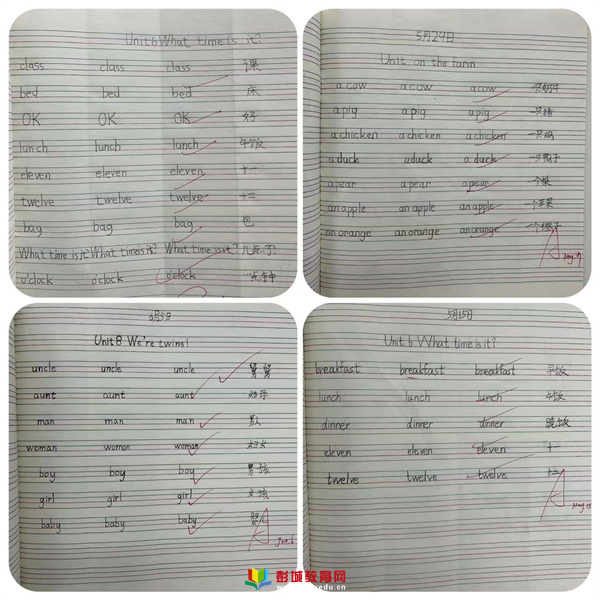 Unit 6 What time is it?
class class class 课
bed bed bed 床
OK OK OK 好
lunch lunch lunch 午饭
eleven eleven eleven 十一
twelve twelve twelve 十二
bag bag bag 包
What time is it? What time is it? What time is it? 几点了?
o'clock o'clock o'clock …点钟
5月29日
Unit on the farm
a cow a cow a cow 一只奶牛
a pig a pig a pig 一只猪
a chicken a chicken a chicken 一只鸡
a duck a duck a duck 一只鸭子
a pear a pear a pear 一个梨
an apple an apple an apple 一个苹果
an orange an orange an orange 一个橙子
A
6月5日
Unit 8 We're twins!
uncle uncle uncle 舅舅
aunt aunt aunt
man man man 男人
woman woman woman 妇女
boy boy boy 男孩
girl girl girl 女孩
baby baby baby 婴儿
A Jun.6
5月15日
Unit 6 What time is it?
breakfast breakfast breakfast 早饭
lunch lunch lunch 午饭
dinner dinner dinner 晚饭
eleven eleven eleven 十一
twelve twelve twelve 十二
A May 15
彭城教育网